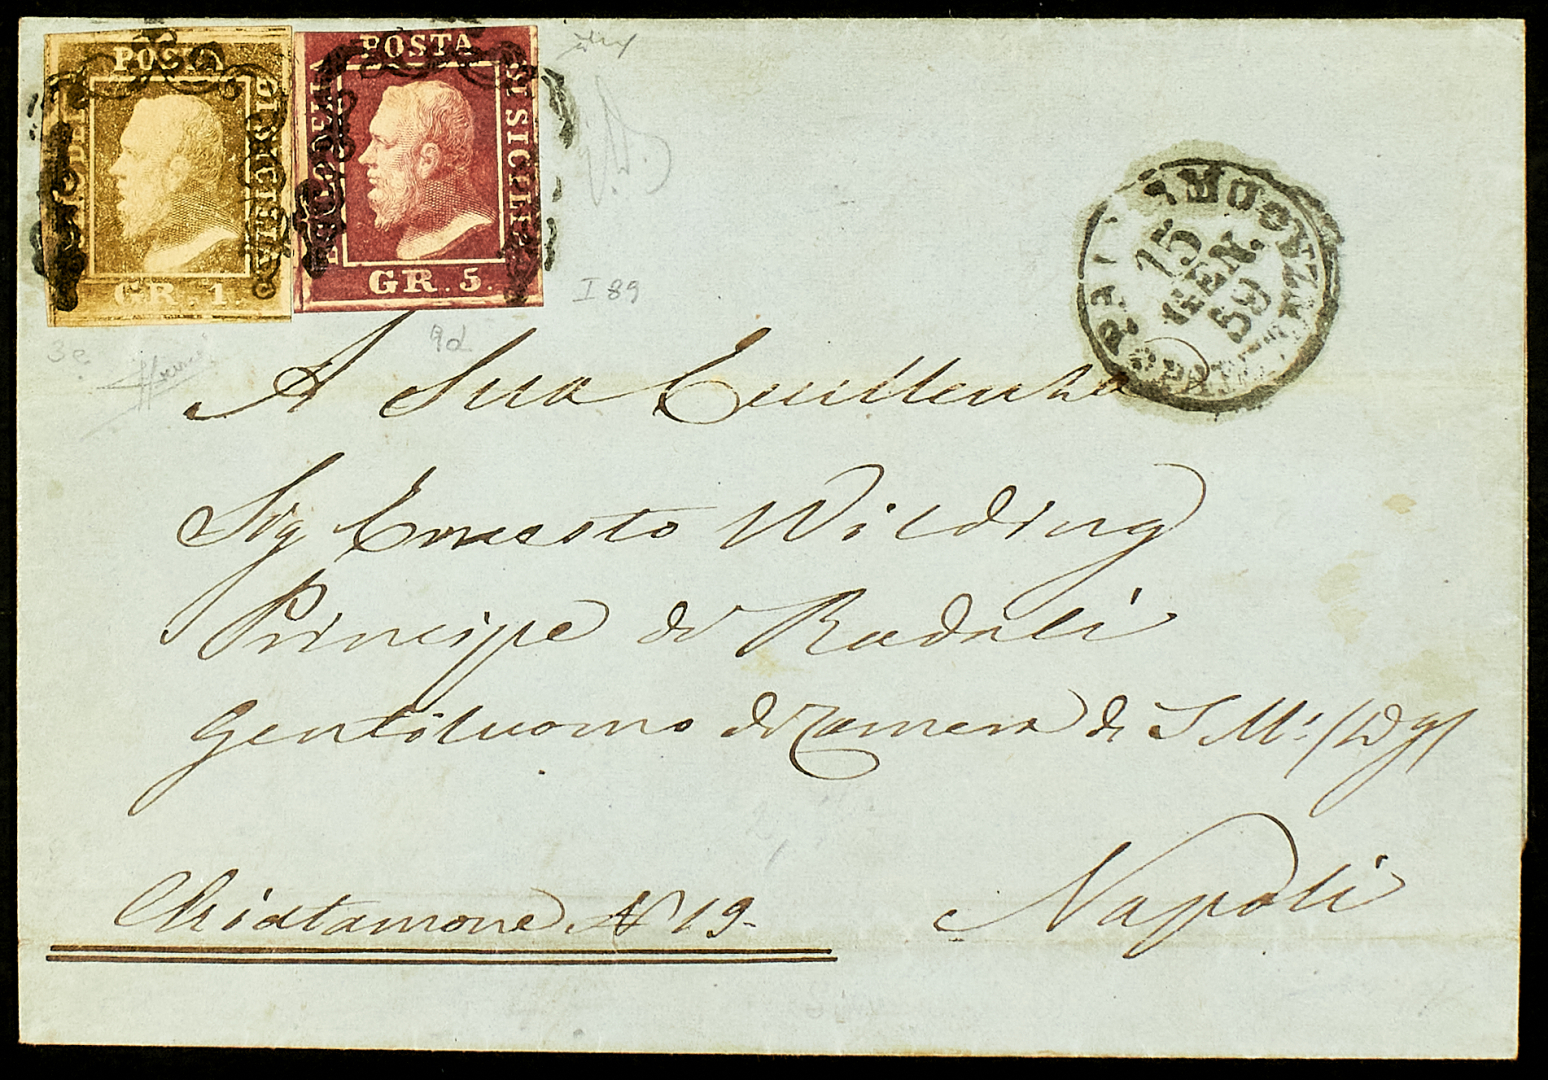 POSTA
GR. 1.
POSTA
DI SICILIA
GR. 5.
15
GEN.
59
I 89
3e
9d
A Sua Eccellenza
Sig Ernesto Wilding
Principe di Radali
Gentiluomo di Camera di S M:
Napoli
Chiatamone N 19-